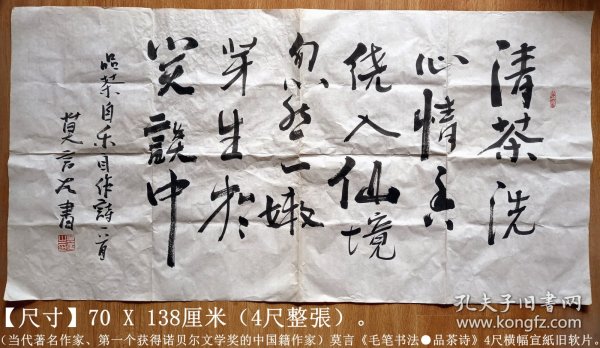 清茶洗
心情香
绕入仙境
忽然一嫩
芽生於
笑談中
品茶自乐自作詩一首
莫言左書
【尺寸】70 X 138厘米（4尺整張）。
（当代著名作家、第一个获得诺贝尔文学奖的中国籍作家）莫言《毛笔书法●品茶诗》4尺横幅宣紙旧软片。
孔夫子旧书网
www.kongfz.com